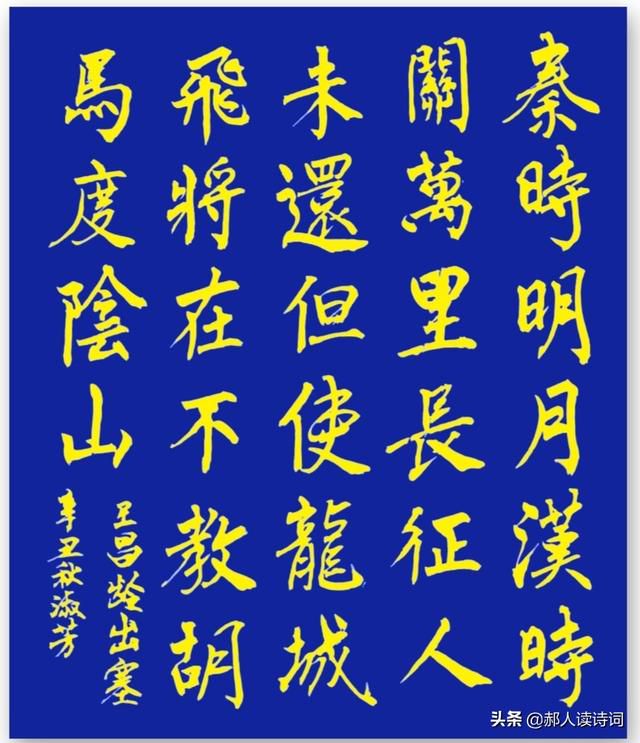 秦時明月漢時
關萬里長征人
未還但使龍城
飛將在不教胡
馬度陰山
王昌齡出塞
辛丑秋淑芳
头条 @郝人读诗词